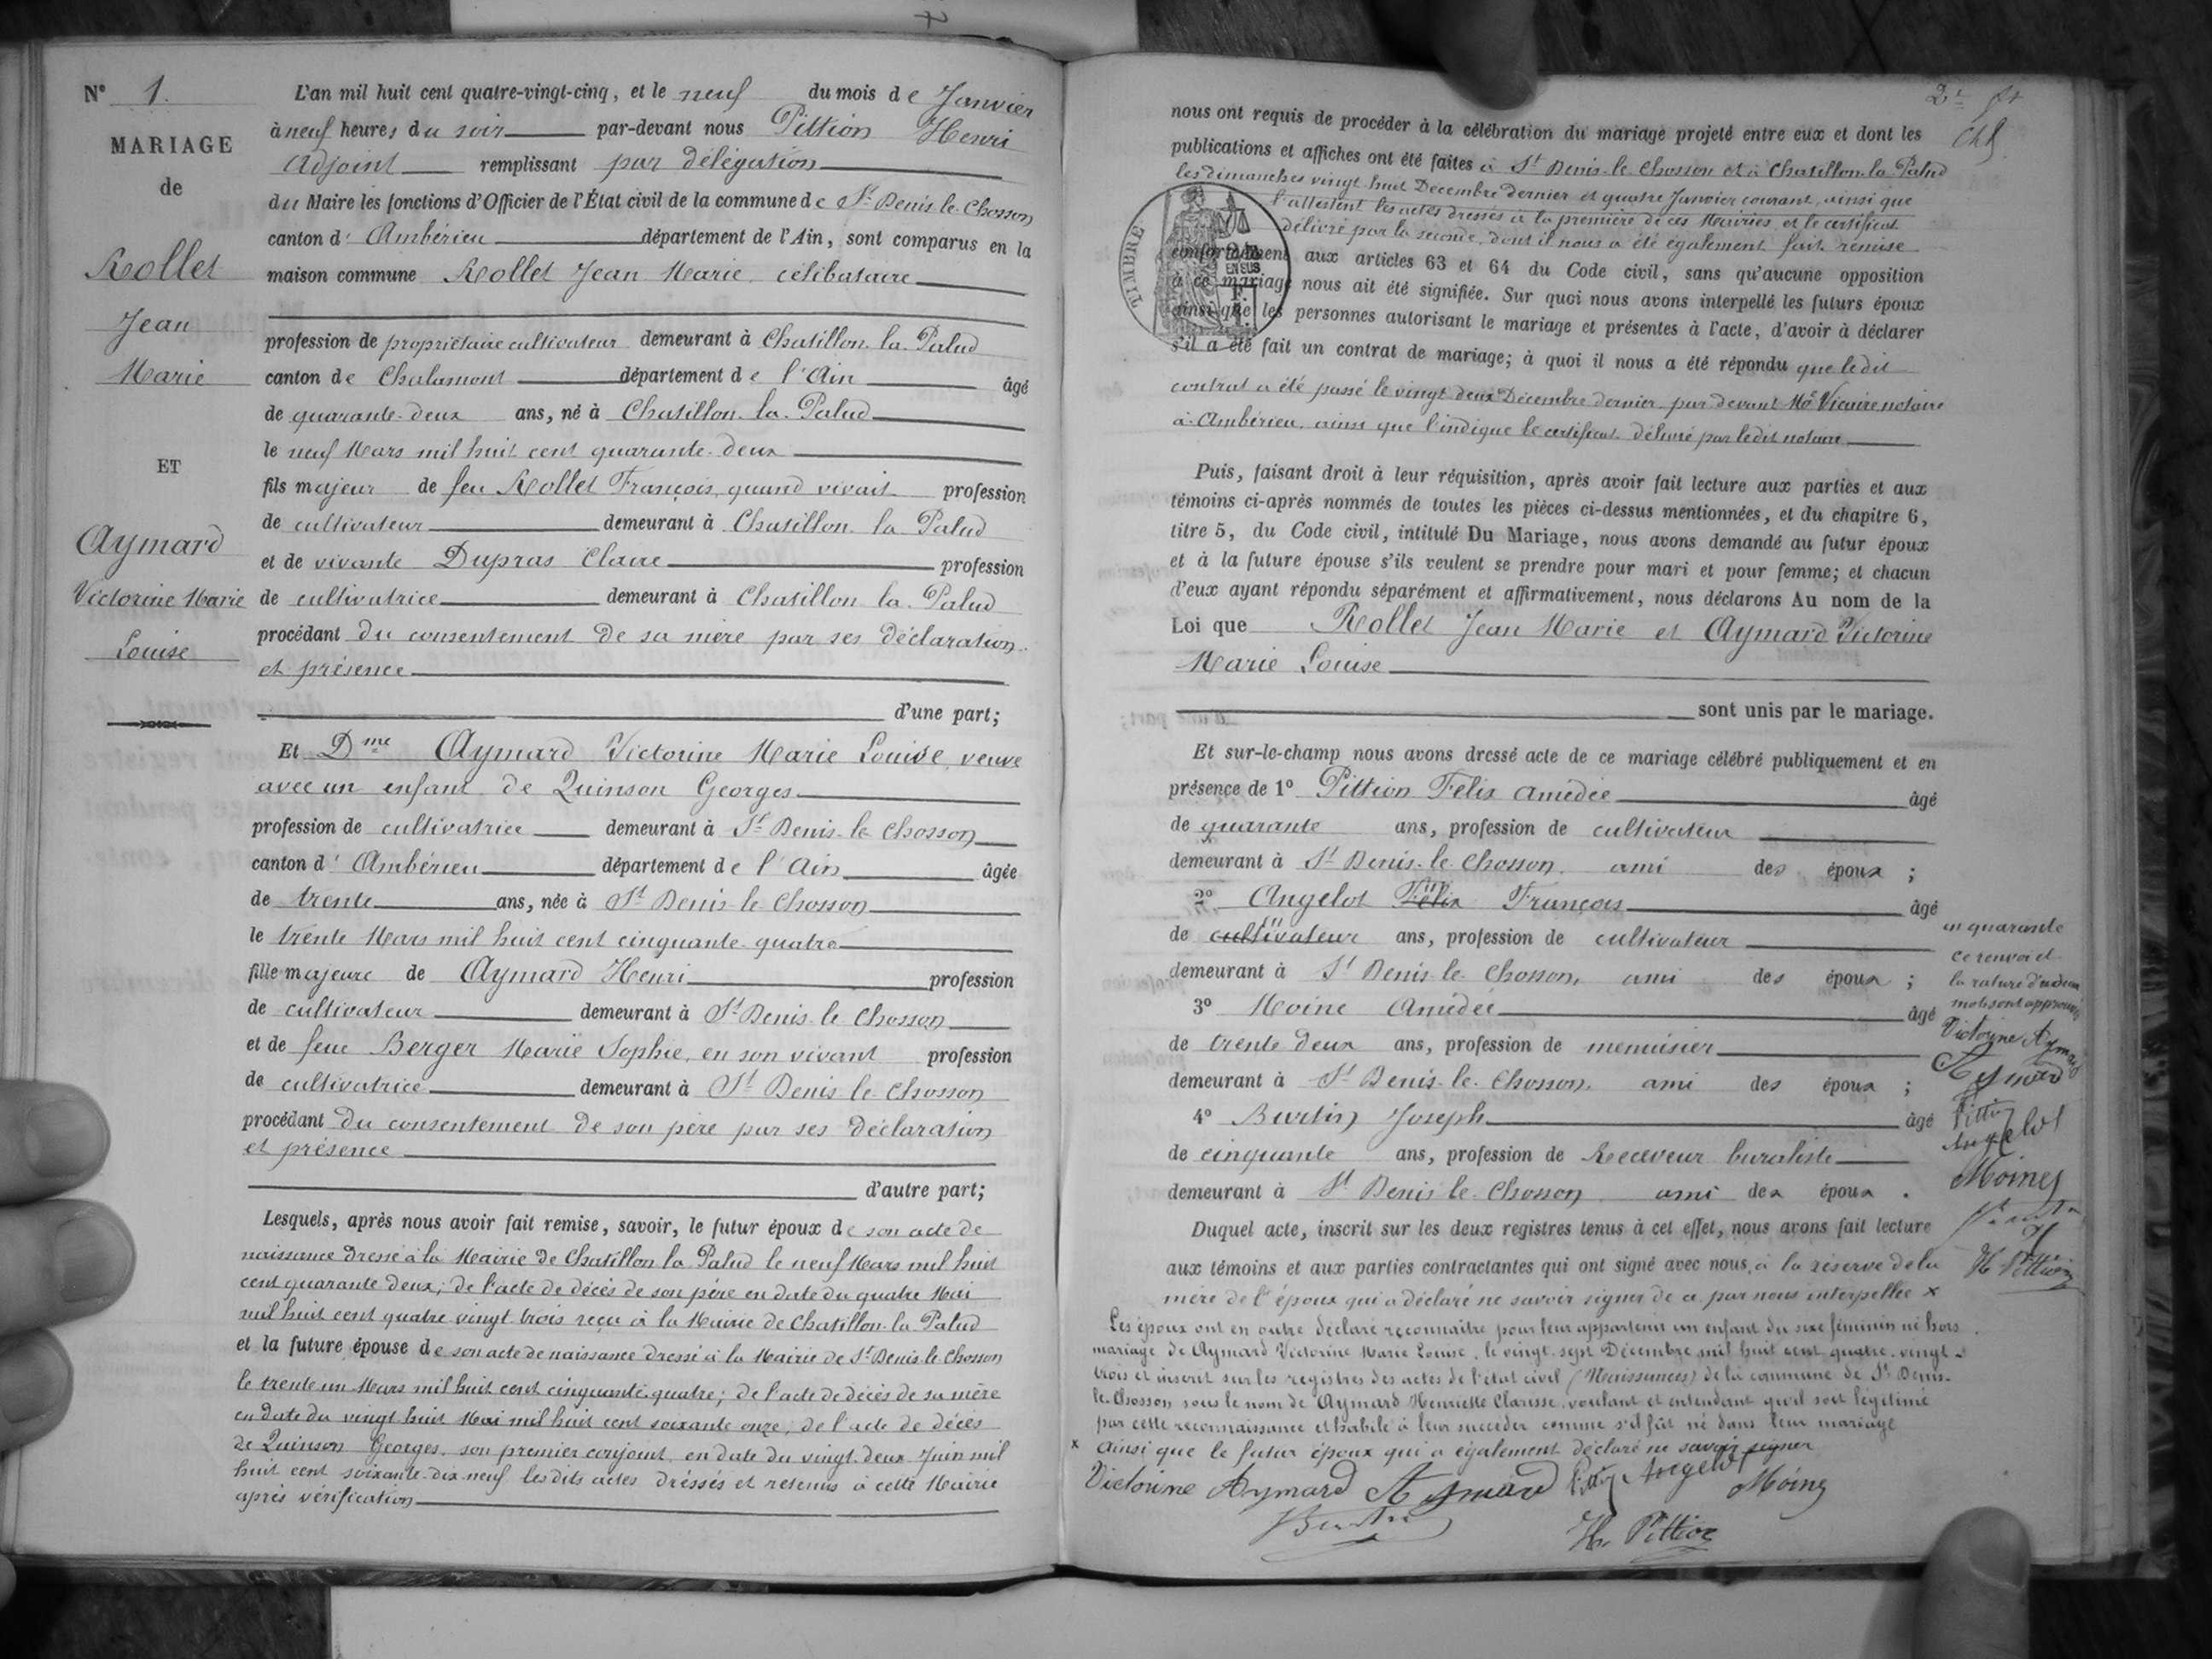 N° 1.
MARIAGE
de
Rollet
Jean
Marie
ET
Aymard
Victorine Marie
Louise
L'an mil huit cent quatre-vingt-cinq, et le neuf du mois de Janvier
à neuf heures du soir par-devant nous Pittion Henri
Adjoint remplissant par délégation
du Maire les fonctions d'Officier de l'État civil de la commune de St Denis le Chosson
canton d' Ambérieu département de l'Ain, sont comparus en la
maison commune Rollet Jean Marie, célibataire
profession de propriétaire cultivateur demeurant à Chatillon la Palud
canton de Chalamont département de l'Ain âgé
de quarante-deux ans, né à Chatillon-la-Palud
le neuf Mars mil huit cent quarante-deux
fils majeur de feu Rollet François, quand vivait profession
de cultivateur demeurant à Chatillon la Palud
et de vivante Dupras Claire profession
de cultivatrice demeurant à Chatillon la Palud
procédant du consentement de sa mère par ses déclaration
et présence
d'une part;
Et Dme Aymard Victorine Marie Louise, veuve
avec un enfant de Quinson Georges
profession de cultivatrice demeurant à St Denis-le-Chosson
canton d' Ambérieu département de l'Ain âgée
de trente ans, née à St Denis-le-Chosson
le trente Mars mil huit cent cinquante-quatre
fille majeure de Aymard Henri profession
de cultivateur demeurant à St Denis-le-Chosson
et de feue Berger Marie Sophie, en son vivant profession
de cultivatrice demeurant à St Denis le Chosson
procédant du consentement de son père par ses déclaration
et présence
d'autre part;
Lesquels, après nous avoir fait remise, savoir, le futur époux de son acte de
naissance dressé à la Mairie de Chatillon la Palud le neuf Mars mil huit
cent quarante deux; de l'acte de décès de son père en date du quatre Mai
mil huit cent quatre vingt trois reçu à la Mairie de Chatillon-la Palud
et la future épouse de son acte de naissance dressé à la Mairie de St Denis le Chosson
le trente un Mars mil huit cent cinquante-quatre; de l'acte de décès de sa mère
en date du vingt huit Mai mil huit cent soixante onze; de l'acte de décès
de Quinson Georges, son premier conjoint, en date du vingt-deux Juin mil
huit cent soixante-dix-neuf les dits actes dréssés et retenus à cette Mairie
après vérification
nous ont requis de procéder à la célébration du mariage projeté entre eux et dont les
publications et affiches ont été faites à St Denis-le-Chosson et à Chatillon-la Palud
les dimanches vingt huit Decembre dernier et quatre Janvier courant, ainsi que
l'attestent les actes dressés à la première de ces Mairies, et le certificat
délivré par la seconde, dont il nous a été également fait remise
TIMBRE
conformément aux articles 63 et 64 du Code civil, sans qu'aucune opposition
à ce mariage nous ait été signifiée. Sur quoi nous avons interpellé les futurs époux
ainsi que les personnes autorisant le mariage et présentes à l'acte, d'avoir à déclarer
s'il a été fait un contrat de mariage; à quoi il nous a été répondu que le dit
contrat a été passé le vingt deux Décembre dernier par devant Me Vicaire notaire
à Ambérieu, ainsi que l'indique le certificat délivré par le dit notaire
Puis, faisant droit à leur réquisition, après avoir fait lecture aux parties et aux
témoins ci-après nommés de toutes les pièces ci-dessus mentionnées, et du chapitre 6,
titre 5, du Code civil, intitulé Du Mariage, nous avons demandé au futur époux
et à la future épouse s'ils veulent se prendre pour mari et pour femme; et chacun
d'eux ayant répondu séparément et affirmativement, nous déclarons Au nom de la
Loi que Rollet Jean Marie et Aymard Victorine
Marie Louise
sont unis par le mariage.
Et sur-le-champ nous avons dressé acte de ce mariage célébré publiquement et en
présence de 1° Pittion Félix Amédée âgé
de quarante ans, profession de cultivateur
demeurant à St Denis-le-Chosson, ami des époux ;
2° Angelot Félix François âgé
de cultivateur ans, profession de cultivateur
demeurant à St Denis-le-Chosson, ami des époux ;
3° Moine Amédée âgé
de trente deux ans, profession de menuisier
demeurant à St Denis-le-Chosson, ami des époux ;
4° Burtin Joseph âgé
de cinquante ans, profession de Receveur buraliste
demeurant à St Denis le Chosson ami des époux .
Duquel acte, inscrit sur les deux registres tenus à cet effet, nous avons fait lecture
aux témoins et aux parties contractantes qui ont signé avec nous, à la réserve de la
mère de l'époux qui a déclaré ne savoir signer de ce par nous interpellée x
Les époux ont en outre déclaré reconnaître pour leur appartenir un enfant du sexe féminin né hors
mariage de Aymard Victorine Marie Louise, le vingt-sept Décembre mil huit cent quatre-vingt-
trois et inscrit sur les registres des actes de l'état civil (Naissances) de la commune de St Denis-
le-Chosson sous le nom de Aymard Henriette Clarisse, voulant et entendant qu'il soit légitimé
par cette reconnaissance et habile à leur succéder comme s'il fût né dans leur mariage
x Ainsi que le futur époux qui a également déclaré ne savoir signer
Victorine Aymard Aymard Angelot Moine
Burtin
H. Pittion
quarante
ce renvoi et
la rature d'un deux
mots sont approuvés
Victorine Aymard
Aymard
Pittion
Angelot
Moine
H Pittion